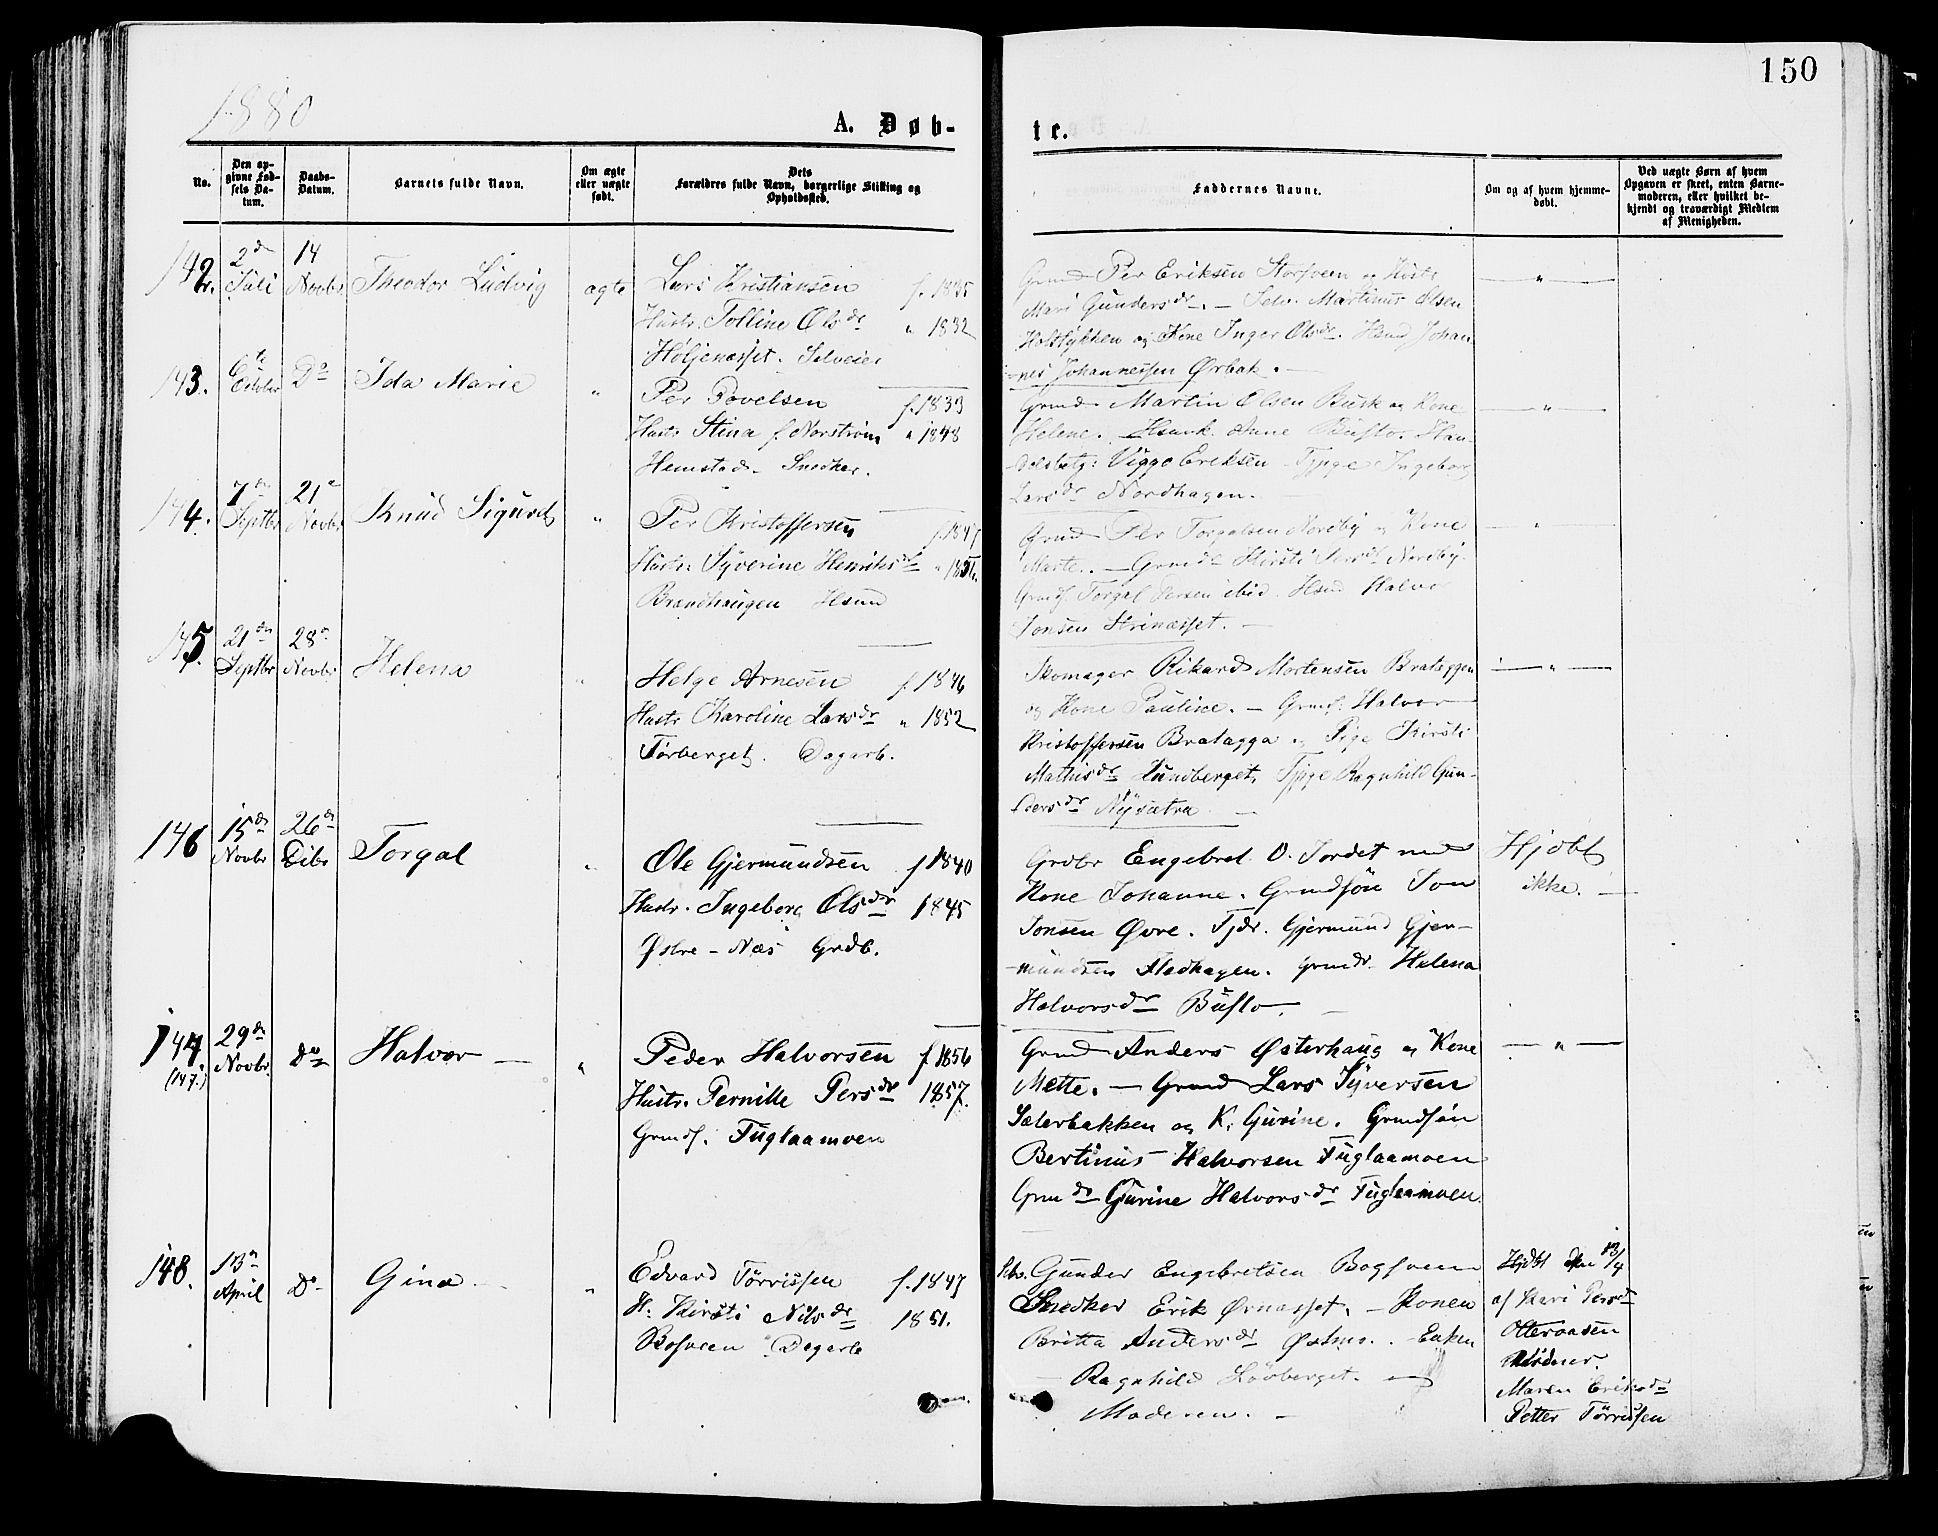 150
1880
A. Døb-
te.
No.
Den op-
givne Fød-
sels Da-
tum.
Daabs-
Datum.
Barnets fulde Navn.
Om ægte
eller uægte
født.
Dets
Forældres fulde Navn, borgerlige Stilling og
Opholdssted.
Faddernes Navne.
Om og af hvem hjemme-
døbt.
Ved uægte Børn af hvem
Opgaven er skeet, enten Barne-
moderen, eller hvilket be-
kjendt og troværdigt Medlem
af Menigheden.
142.
2den
Juli
14
Novbr
Theodor Ludvig
ægte
Lars Kristiansen f. 1835
Hustr. Tolline Olsdr " 1832
Høljenæsset. Selveier
Grmd Per Eriksen Storsveen og Hustr
Mari Gundersdr. — Selv. Martinus Olsen
Holtlykken og Kone Inger Olsdr. Hsmd Johan-
nes Johannessen Ørbak. —
— " —
143.
Do
Ida Marie
"
Per Povelsen f. 1839
Hustr Stina f. Norstrøm " 1848
Hemstad - Snedker.
Grmd Martin Olsen Busk og Kone
Helene. Hsmk. Anne Buflo. Han-
delsbetj: Viggo Eriksen Tjpge Ingebor
Larsdr Nordhagen.
— " —
144.
7de
Septbr
21
Novbr
Knud Sigurd
"
Per Kristoffersen f. 1847
Hustr. Syverine Henriksdr " 1856.
Brændhaugen Hsmd
Grmd Per Torgalsen Noreby og Kone
Marte. — Grmdr Kirsti Persdr Noreby.
Grmds. Torgal Persen ibid. Hsmd Halvor
Jonsen Strinæsset. —
— " —
145
21de
Septbr
28
Novbr
Helena
"
Helge Arnesen f. 1846
Hustr Karoline Larsdr " 1852
Førberget. Dagarb.
Skomager Rikard Mortensen Brataggen
og Kone Pauline. — Grmds. Halvor
Kristoffersen Bratagga og Pige Kirsti
Mathisdr Lundberget, Tjpge Ragnhild Gun-
dersdr Nysætra
— " —
146
15de
Novbr
26de
Dcbr
Torgal
"
Ole Gjermundsen f 1840
Hustr. Ingeborg Olsdr 1845
Østre - Næs Grdb.
Grdbr Engebret O. Jordet med
Kone Johanne. Grmdsøn Jon
Jonsen Øvre. Tjdr. Gjermund Gjer-
mundsen Fladhagen. Grmdr. Helena
Halvorsdr Buflo. —
Hjdbt
ikke. —
147
(147.)
29de
Novbr
Do
Halvor —
"
Peder Halvorsen f 1856
Hustr. Pernille Persdr 1857.
Grmds. Fuglaamoen
Grmd Anders Østerhaug og Kone
Mette. — Grmd Lars Syversen
Sæterbakken og K. Gurine. Grmdsøn
Bertinus Halvorsen Fuglaamoen
Grmdr Gurine Halvorsdr Fuglaamoen.
— " —
148.
13
April
Do
Gina —
"
Edvard Tørrissen f. 1847
H. Kirsti Nilsdr 1851.
Dagarb
Selv. Gunder Engebretsen Bogsveen
Snedker Erik Ørnæsset, — Konen
Britta Andersdr Østmo. - Enken
Ragnhild Løvberget. —
Moderen. —
Hjdbt den 13/4
af Kari Persdr
Otteraasen
Maren Eriksdr
Petter Tørrissen